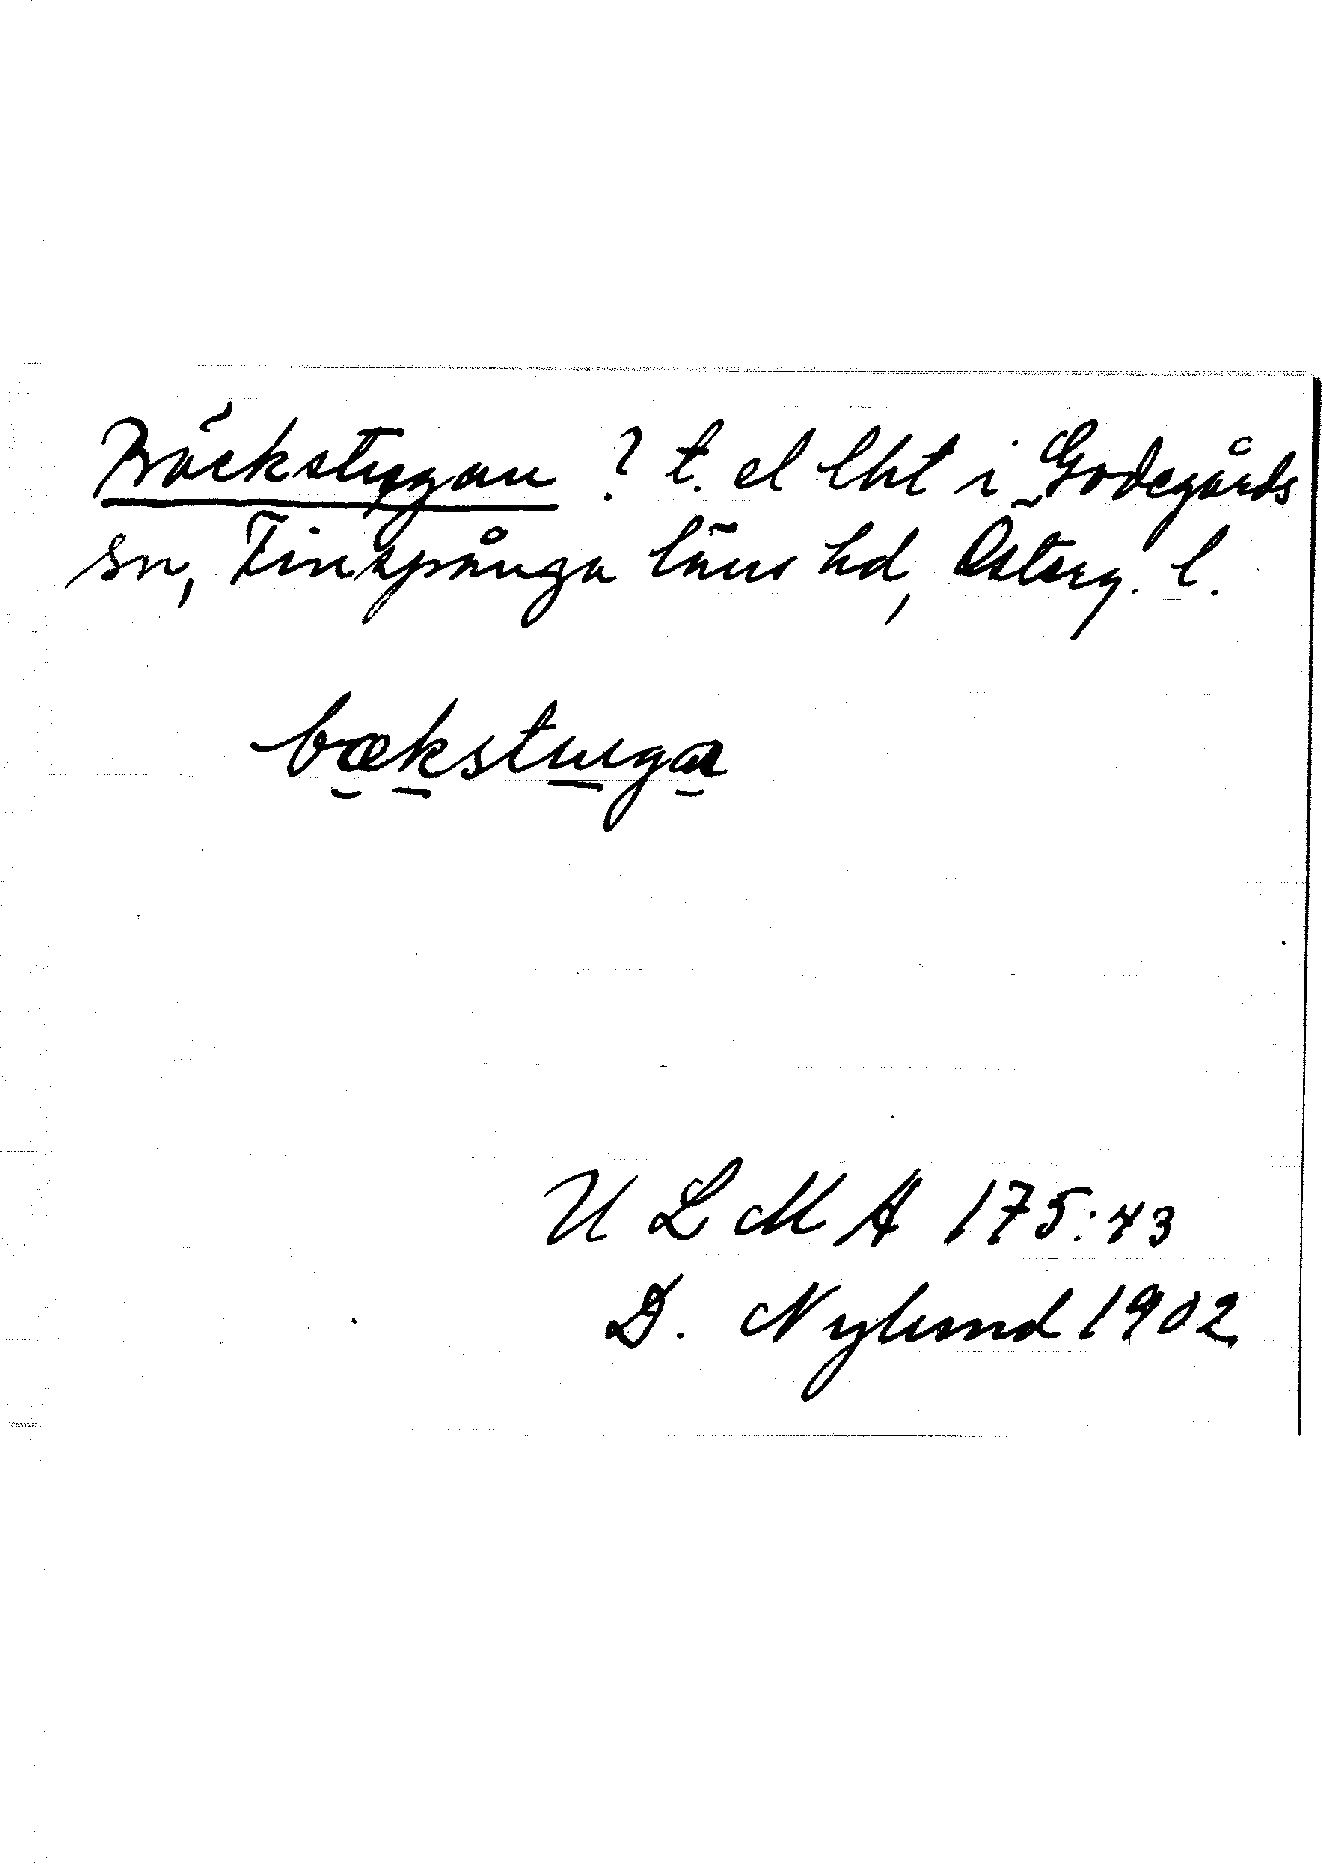 Bäckstugan ? t. el lht i Godegårds
sn, Finspånga läns hd, Österg. l.
bækstuga
U L M A 175:43
D. Nylund 1902